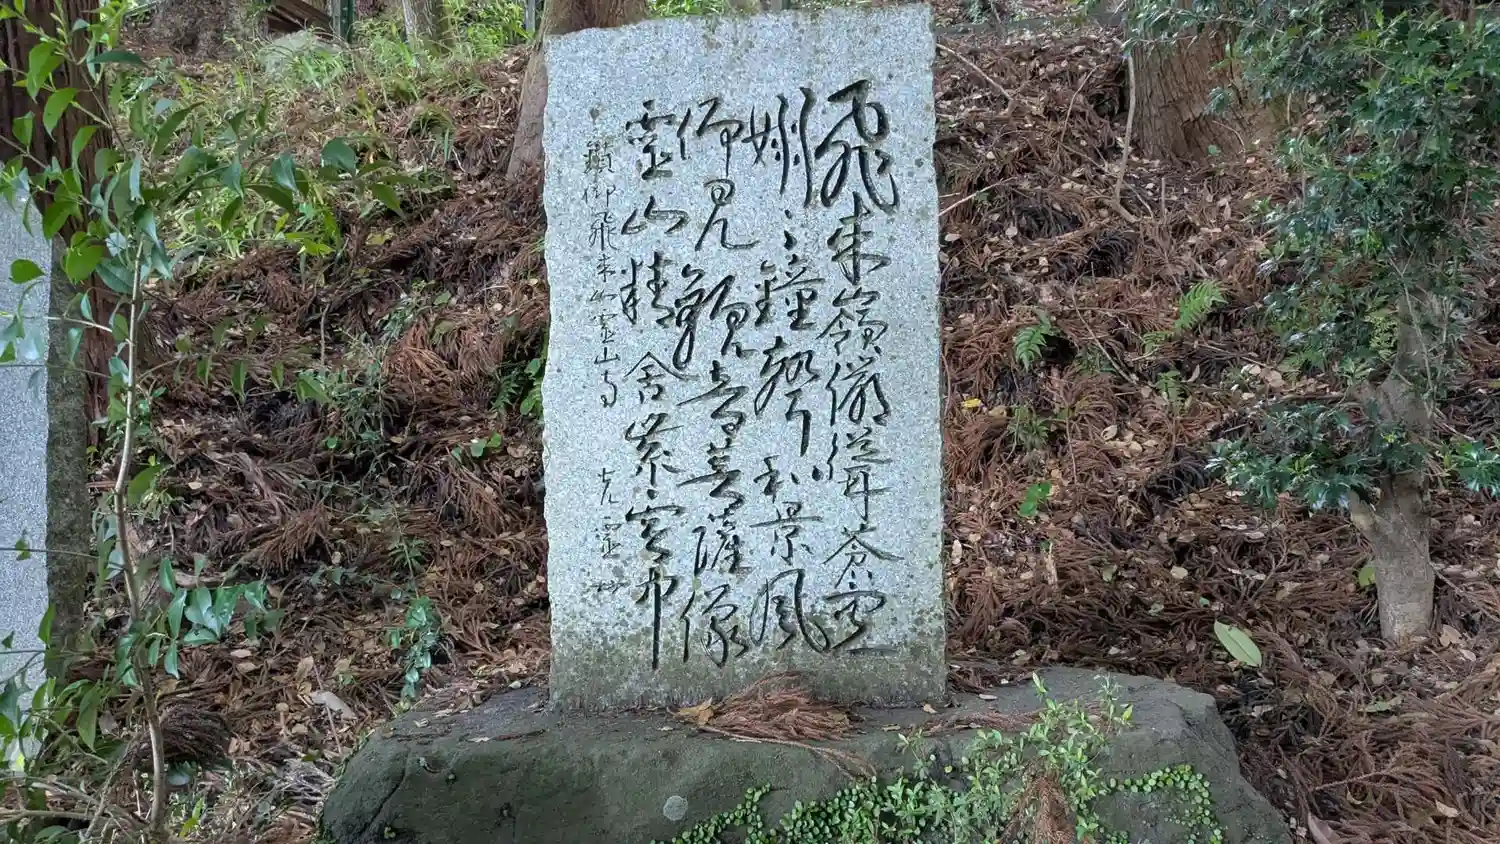 飛来嶺儼聳蒼空
嫋々鐘聲和景風
仰見観音菩薩像
霊山精舎紫雲中
仰飛来山霊山寺